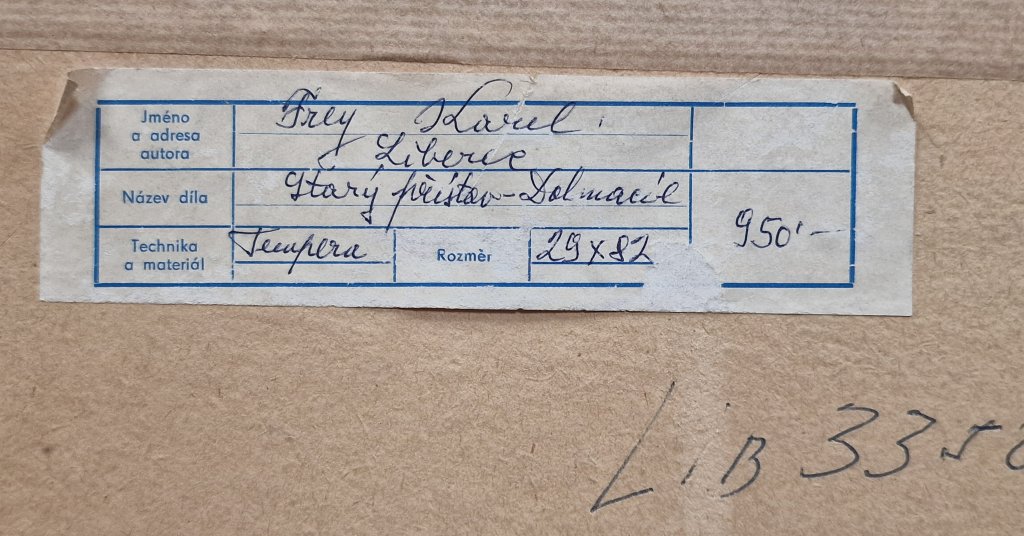 Jméno
a adresa
autora
Frey Karel
Liberec
Název díla
Starý přístav-Dalmacie
950'-
Technika
a materiál
Tempera
Rozměr
29x82
LiB 3350